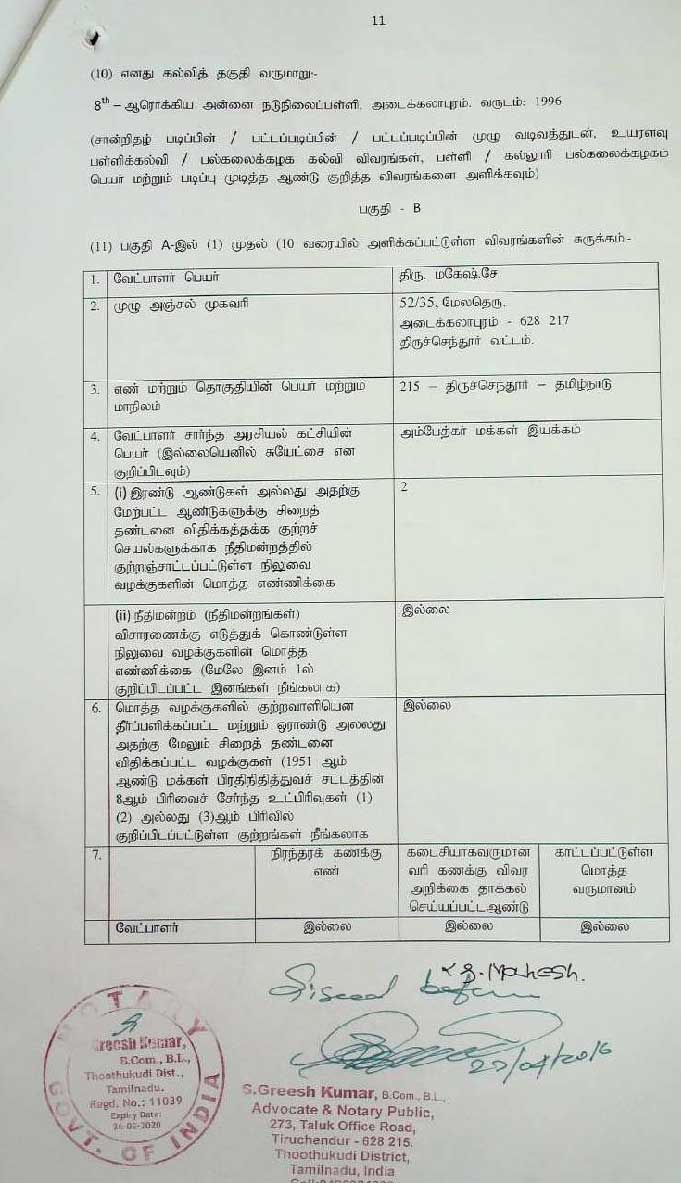 11
(10) எனது கல்வித் தகுதி வருமாறு:-
8th – ஆரொக்கிய அன்னை நடுநிலைப்பள்ளி, அடைக்கலாபுரம். வருடம்: 1996
(சான்றிதழ் படிப்பின் / பட்டப்படிப்பின் / பட்டப்படிப்பின் முழு வடிவத்துடன், உயரளவு
பள்ளிக்கல்வி / பல்கலைக்கழக கல்வி விவரங்கள், பள்ளி / கல்லூரி பல்கலைக்கழகம்
பெயர் மற்றும் படிப்பு முடித்த ஆண்டு குறித்த விவரங்களை அளிக்கவும்)
பகுதி - B
(11) பகுதி A-இல் (1) முதல் (10 வரையில் அளிக்கப்பட்டுள்ள விவரங்களின் சுருக்கம்-
1. வேட்பாளர் பெயர் திரு. மகேஷ்.சே
2. முழு அஞ்சல் முகவரி 52/35, மேலதெரு.
அடைக்கலாபுரம் - 628 217
திருச்செந்தூர் வட்டம்.
3. எண் மற்றும் தொகுதியின் பெயர் மற்றும் 215 – திருச்செந்தூர் – தமிழ்நாடு
மாநிலம்
4. வேட்பாளர் சார்ந்த அரசியல் கட்சியின் அம்பேத்கர் மக்கள் இயக்கம்
பெயர் (இல்லையெனில் சுயேட்சை என
குறிப்பிடவும்)
5. (i) இரண்டு ஆண்டுகள் அல்லது அதற்கு 2
மேற்பட்ட ஆண்டுகளுக்கு சிறைத்
தண்டனை விதிக்கத்தக்க குற்றச்
செயல்களுக்காக நீதிமன்றத்தில்
குற்றஞ்சாட்டப்பட்டுள்ள நிலுவை
வழக்குகளின் மொத்த எண்ணிக்கை
(ii) நீதிமன்றம் (நீதிமன்றங்கள்) இல்லை
விசாரணைக்கு எடுத்துக் கொண்டுள்ள
நிலுவை வழக்குகளின் மொத்த
எண்ணிக்கை (மேலே இனம் 1ல்
குறிப்பிடப்பட்ட இனங்கள் நீங்கலாக)
6. மொத்த வழக்குகளில் குற்றவாளியென இல்லை
தீர்ப்பளிக்கப்பட்ட மற்றும் ஓராண்டு அல்லது
அதற்கு மேலும் சிறைத் தண்டனை
விதிக்கப்பட்ட வழக்குகள் (1951 ஆம்
ஆண்டு மக்கள் பிரதிநிதித்துவச் சட்டத்தின்
8ஆம் பிரிவைச் சேர்ந்த உட்பிரிவுகள் (1)
(2) அல்லது (3)ஆம் பிரிவில்
குறிப்பிடப்பட்டுள்ள குற்றங்கள் நீங்கலாக
7. நிரந்தரக் கணக்கு கடைசியாகவருமான காட்டப்பட்டுள்ள
எண் வரி கணக்கு விவர மொத்த
அறிக்கை தாக்கல் வருமானம்
செய்யப்பட்டஆண்டு
வேட்பாளர் இல்லை இல்லை இல்லை
S. Mahesh.
27/04/2016
NOTARY
Greesh Kumar,
B.Com., B.L.,
Thoothukudi Dist.,
Tamilnadu.
Regd. No.: 11039
Expiry Date:
GOVT. OF INDIA
S.Greesh Kumar, B.Com., B.L.,
Advocate & Notary Public,
273, Taluk Office Road,
Tiruchendur - 628 215.
Thoothukudi District,
Tamilnadu, India